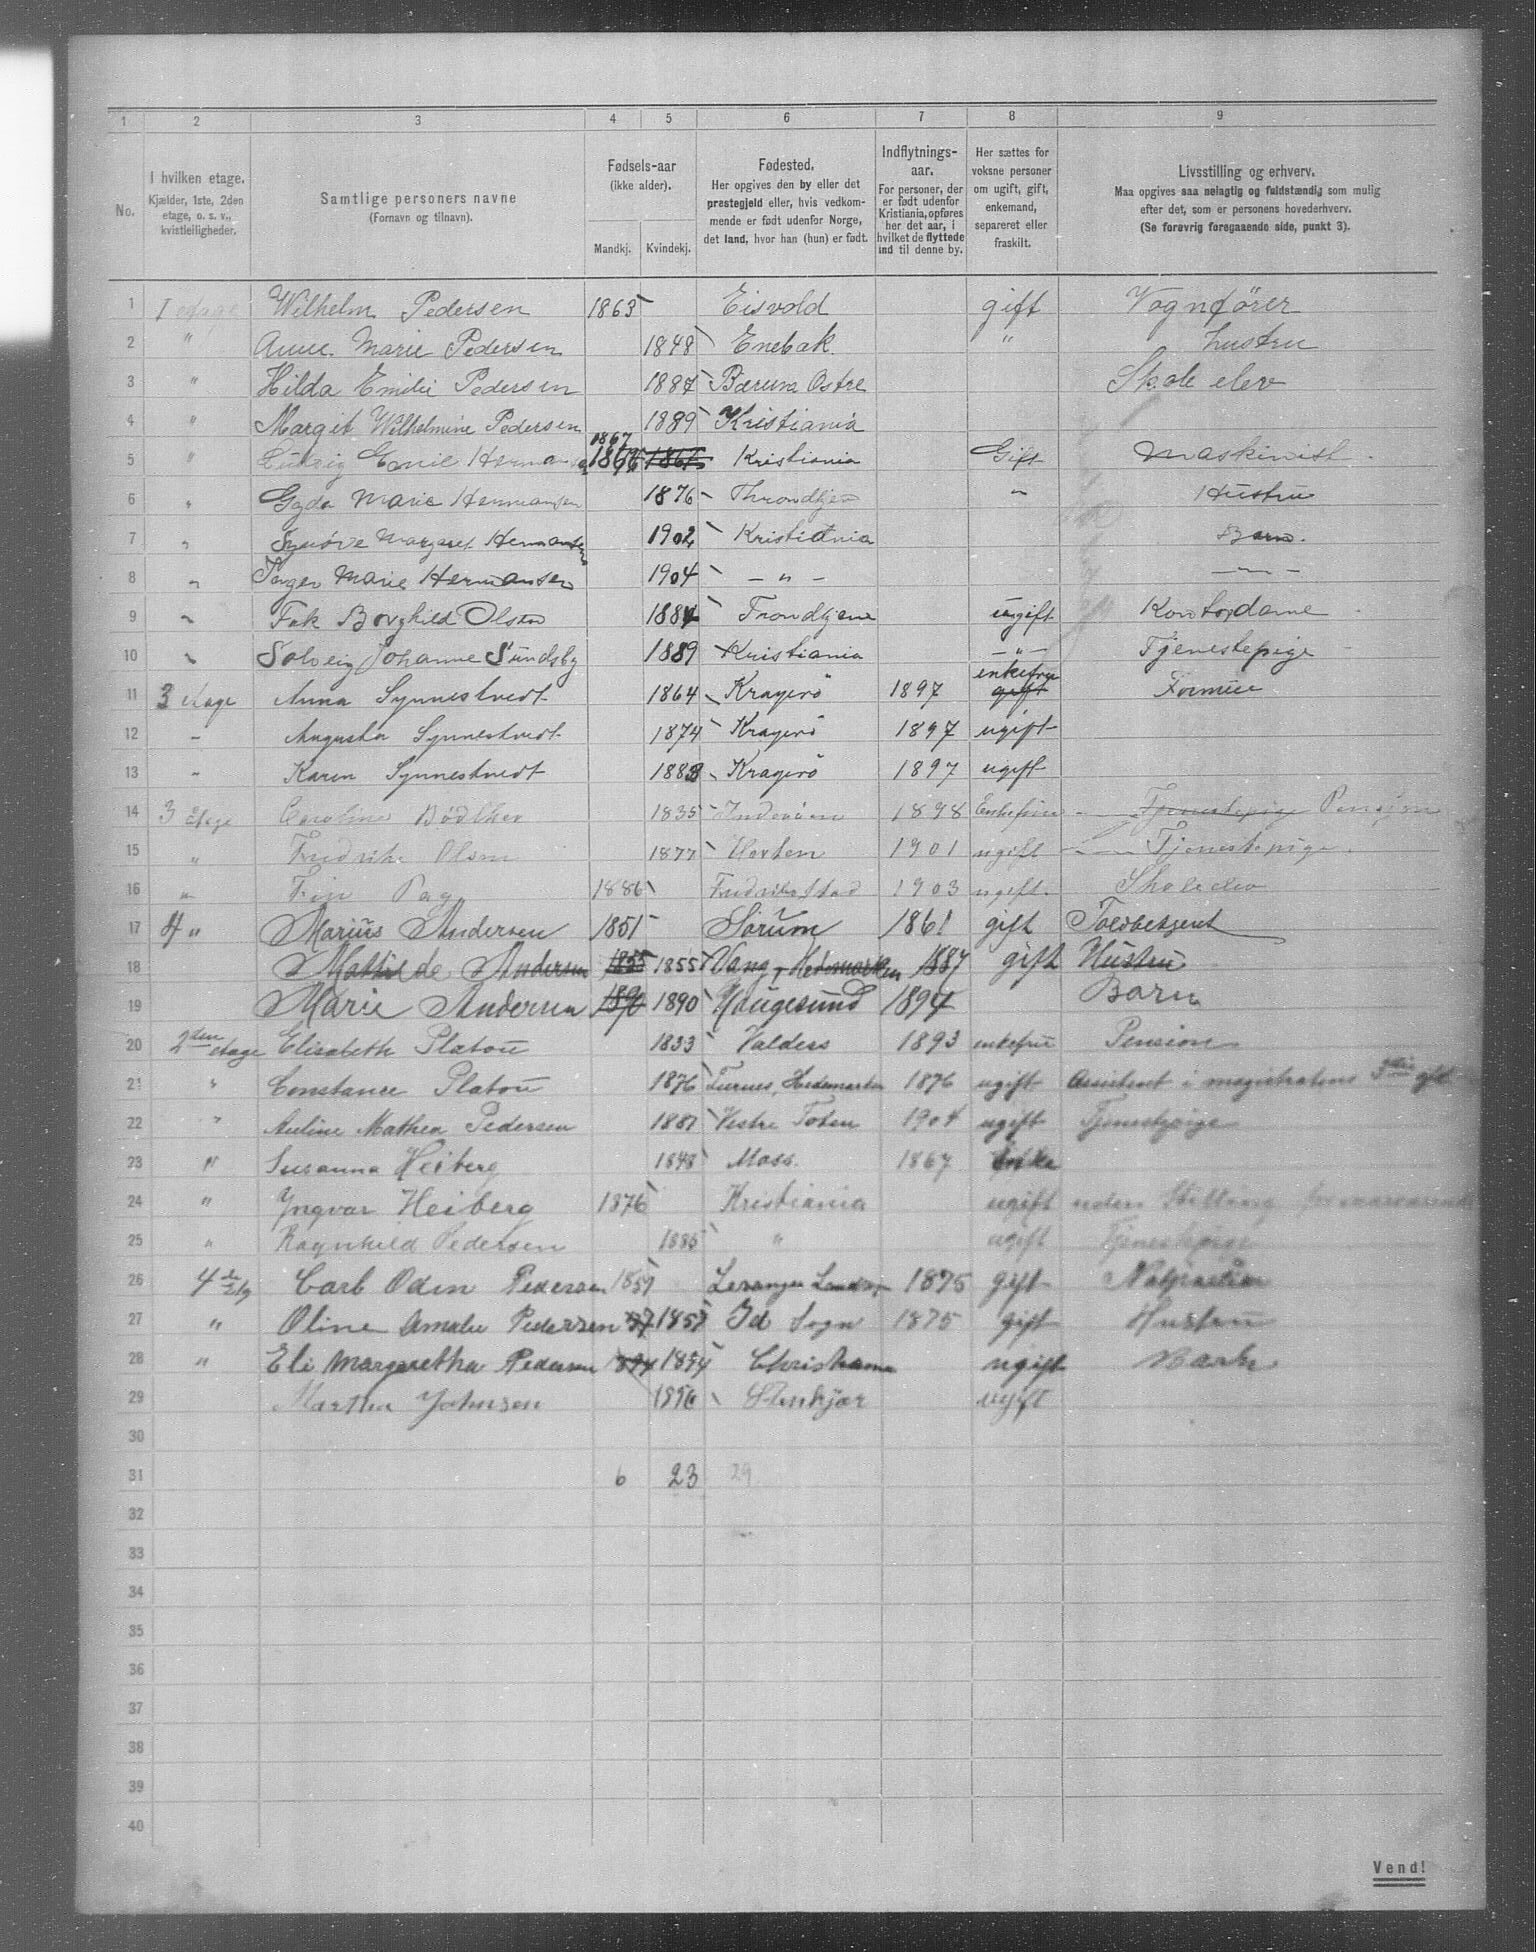 1 2 3 4 5 6 7 8 9
No.
I hvilken etage.
Kjælder, 1ste, 2den
etage, o. s. v.,
kvistleiligheder.
Samtlige personers navne
(Fornavn og tilnavn).
Fødsels-aar
(ikke alder).
Mandkj. Kvindekj.
Fødested.
Her opgives den by eller det
præstegjeld eller, hvis vedkom-
mende er født udenfor Norge,
det land, hvor han (hun) er født.
Indflytnings-
aar.
For personer, der
er født udenfor
Kristiania, opføres
her det aar, i
hvilket de flyttede
ind til denne by.
Her sættes for
voksne personer
om ugift, gift,
enkemand,
separeret eller
fraskilt.
Livsstilling og erhverv.
Maa opgives saa nøiagtig og fuldstændig som mulig
efter det, som er personens hovederhverv.
(Se forøvrig foregaaende side, punkt 3).
1 I etage Wilhelm Pedersen 1863 Eisvold gift Vognfører
2 " Anne Marie Pedersen 1848 Enebak " hustru
3 " Hilda Emilie Pedersen 1887 Bærum Østre Skole elev
4 " Margit Wilhelmine Pedersen 1889 Kristiania
1867
5 " Ludvig Emil Hermansen 1866 1867 Kristiania Gift Maskinist
6 " Gyda Marie Hermansen 1876 Throndhjem " Hustru
7 " Synøve Margaret Hermansen 1902 Kristiania Barn.
8 " Marie Hermansen 1904 - " - - " -
9 " Frk Borghild Olsen 1884 Trondhjem ugift Kontordame
10 " Solveig Johanne Sundsby 1889 Kristiania - " - Tjenestepige
enkefru
11 3 etage Anna Synnestvedt 1864 Kragerö 1897 gift Formue
12 - Augusta Synnestvedt 1874 Kragerö 1897 ugift
13 - Karen Synnestvedt 1883 Kragerö 1897 ugift
14 3 Etage Caroline Bödtker 1835 Inderöen 1898 Enkefrue Tjenestepige Pension
15 " Fredrikke Olsen 1877 Horten 1901 ugift Tjenestepige.
16 " Fin 1886 Fredrikstad 1903 ugift. Skoleelev
17 4 " Marius Andersen 1851 Sørum 1861 gift Toldbetjent
18 Mathilde Andersen 1855 1855 Vang, Hedemarken 1887 gift Hustru
19 Marie Andersen 1890 1890 Haugesund 1894 Barn
20 2den etage Elisabeth Platou 1833 Valders 1893 enkefru Pension
21 " Constance Platou 1876 Hedemarken 1876 ugift Assistent i magistratens 3die afd.
22 " Auline Mathea Pedersen 1887 Vestre Toten 1904 ugift Tjenestepige
23 " Susanna Heiberg 1848 Moss. 1867 Enke
24 " Yngvar Heiberg 1876 Kristiania ugift uden Stilling
25 " Ragnhild Pedersen 1885 " ugift Tjenestepige
26 4de Etg Carl Odin Pedersen 1857 1875 gift
27 " Oline Amalie Pedersen 57 1857 Id Sogn 1875 gift Hustru
28 " Eli Margaretha Pedersen 1894 1894 Christiania ugift Barn
29 Martha Johnsen Stenkjær ugift
30
31 6 23 29
32
33
34
35
36
37
38
39
40
Vend!